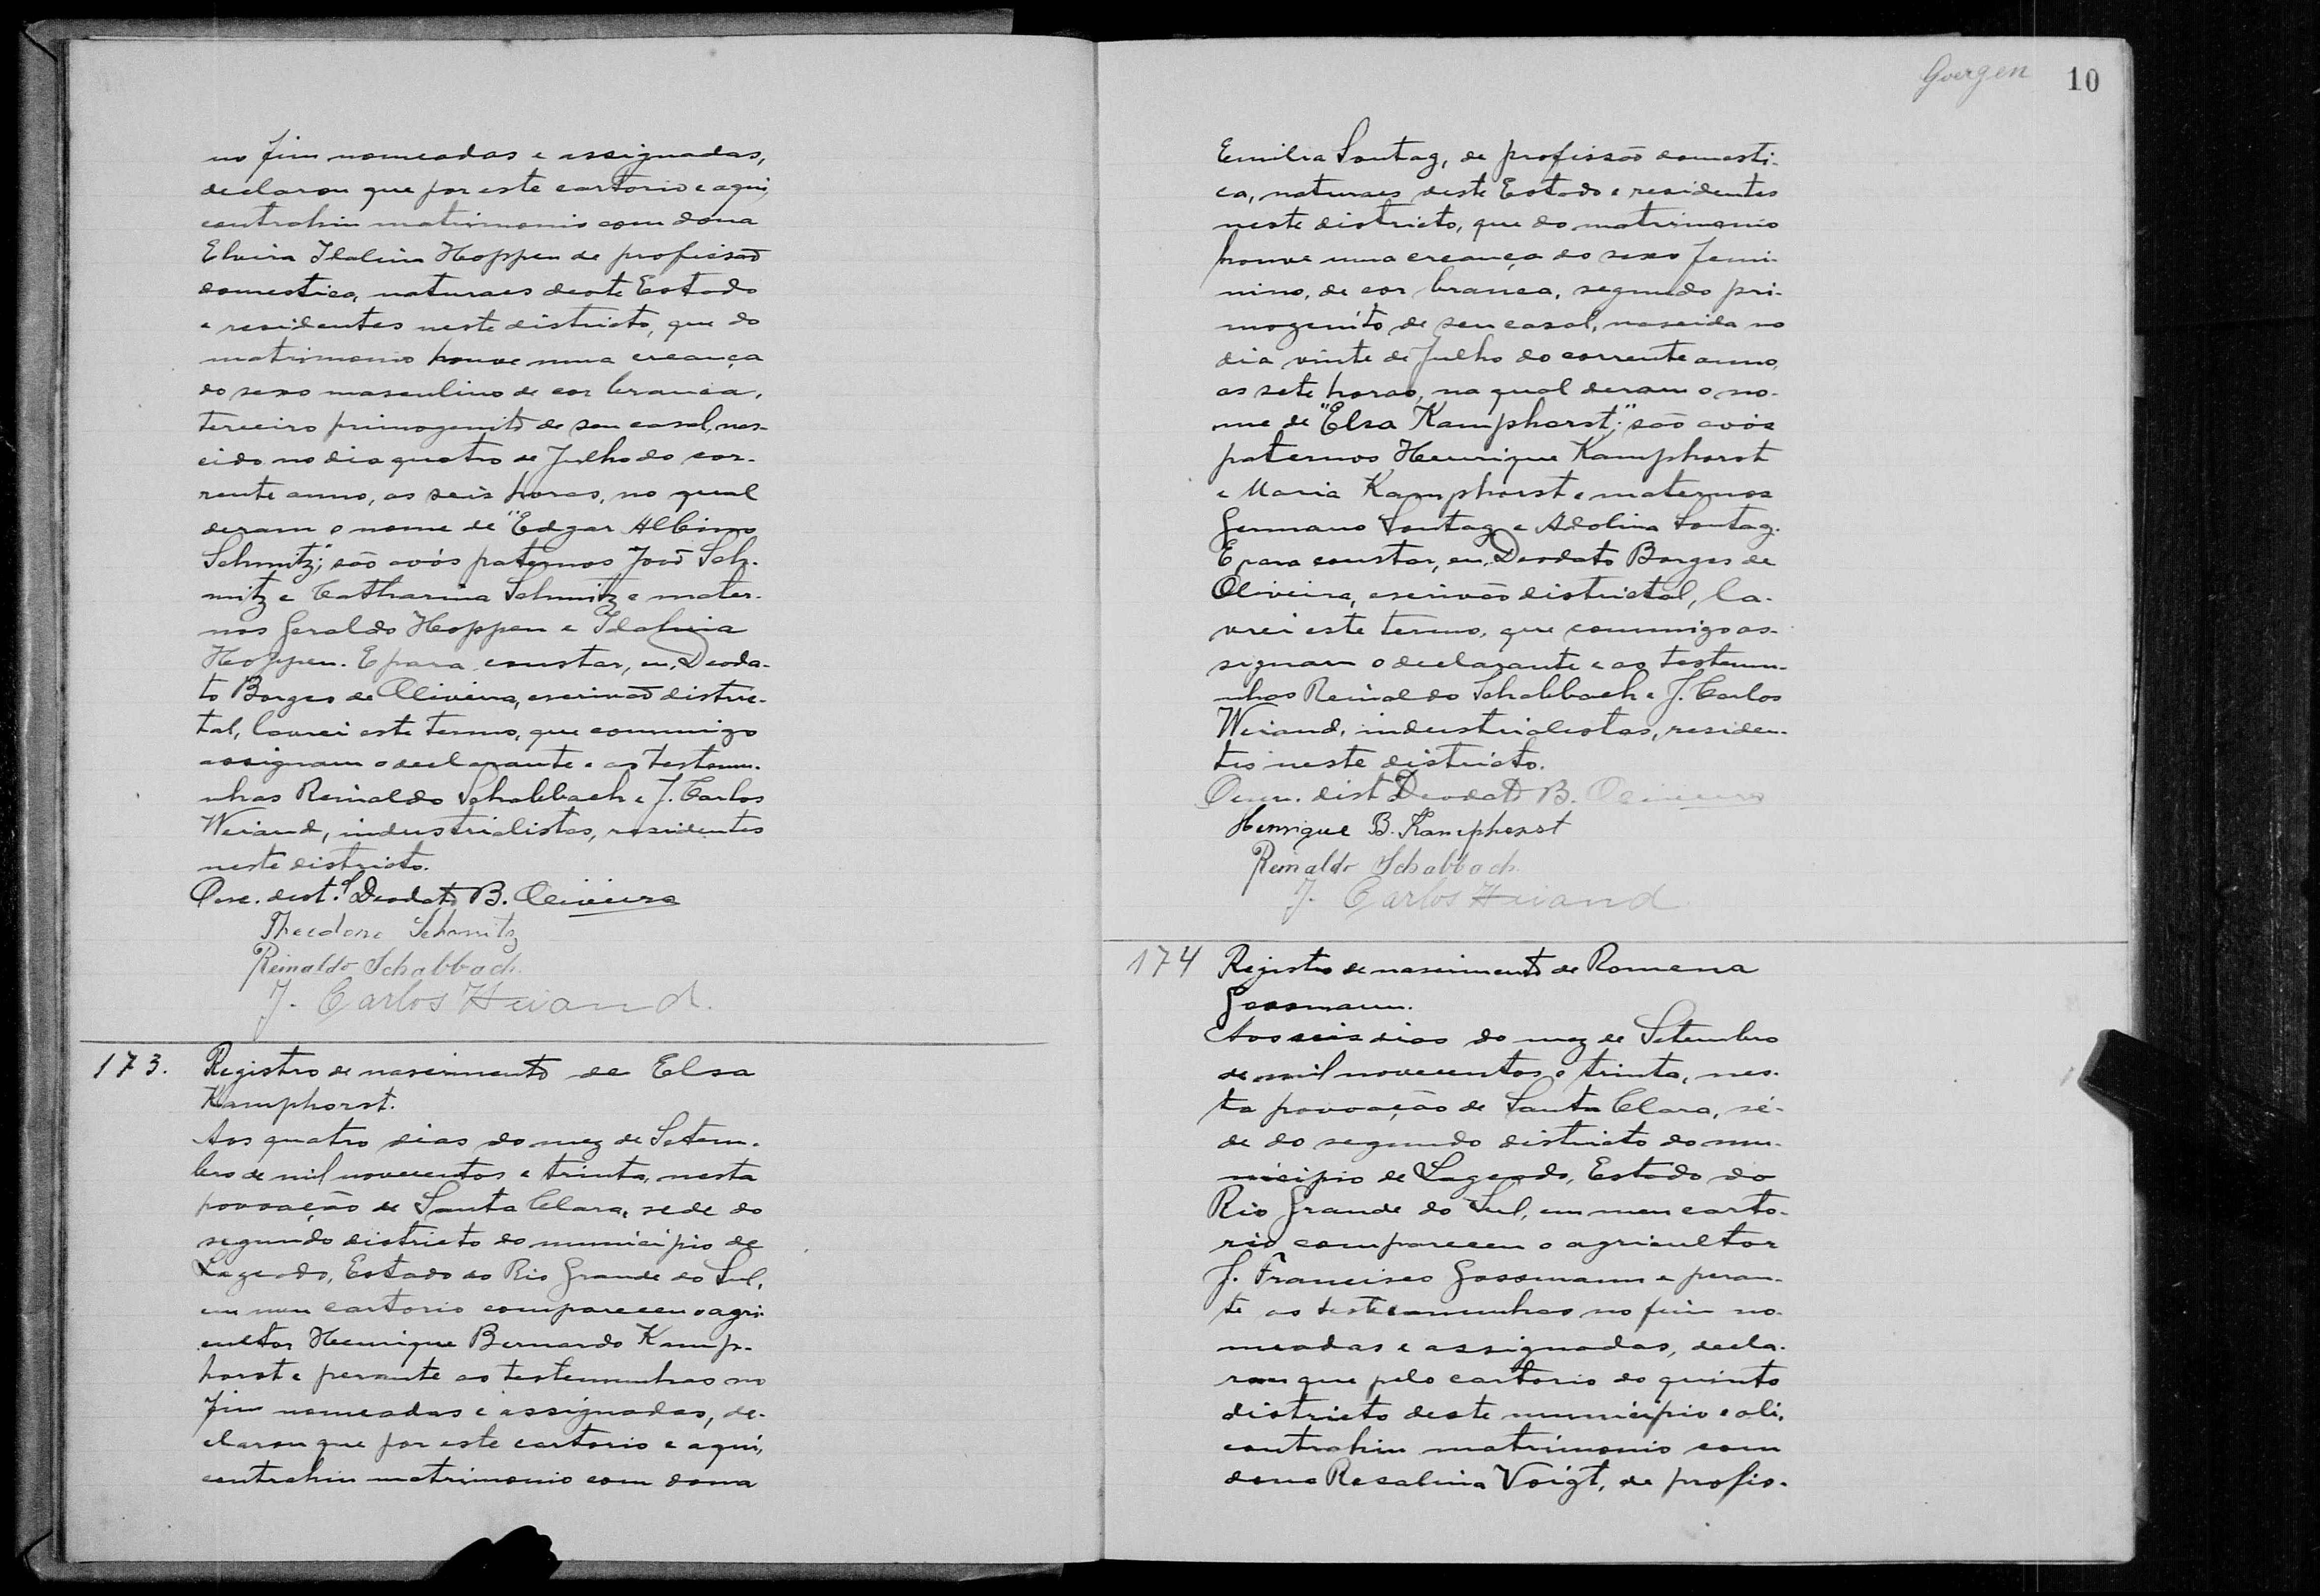 no fim nomeadas e assignadas,
declarou que por este cartorio e aqui,
contrahiu matrimonio com dona
Elvira Idalina Hoppen de profissão
domestica, naturaes deste Estado
e residentes neste districto, que do
matrimonio houve uma creança
do sexo masculino de cor branca,
terceiro primogenito de seu casal, nas-
cido no dia quatro de Julho do cor-
rente anno, as seis horas, no qual
deram o nome de "Edgar Albino
Schmitz;" são avós paternos João Sch-
mitz e Catharina Schmitz e mater-
nos Geraldo Hoppen e Idalina
Hoppen. E para constar, eu, Deoda-
to Borges de Oliveira, escrivão distric-
tal, lavrei este termo, que commigo
assignam o declarante e as testemu-
nhas Reinaldo Schabbach e J. Carlos
Weiand, industrialistas, residentes
neste districto.
dist.l Deodato B. Oliveira
Theodoro Schmitz
Reinaldo Schabbach
J. Carlos Weiand.
173. Registro de nascimento de Elsa
Kamphorst.
Aos quatro dias do mez de Setem-
bro de mil novecentos e trinta, nesta
povoação de Santa Clara, sede do
segundo districto do municipio de
Lageado, Estado do Rio Grande do Sul,
em meu cartorio compareceu o agri-
cultor Henrique Bernardo Kamp-
horst e perante as testemunhas no
fim nomeadas e assignadas, de-
clarou que por este cartorio e aqui,
contrahiu matrimonio com dona
Goergen 10
Emilia Sontag, de profissão domesti-
ca, naturaes deste Estado e residentes
neste districto, que do matrimonio
houve uma creança do sexo femi-
nino, de cor branca, segundo pri-
mogenito de seu casal, nascida no
dia vinte de Julho do corrente anno,
as sete horas, na qual deram o no-
me de "Elsa Kamphorst;" são avós
paternos Henrique Kamphorst
e Maria Kamphorst e maternos
Germano Sontag e Adolina Sontag.
E para constar, eu, Deodato Borges de
Oliveira, escrivão districtal, la-
vrei este termo, que commigo as-
signam o declarante e as testemu-
nhas Reinaldo Schabbach e J. Carlos
Weiand, industrialistas, residen-
tes neste districto.
dist Deodato B. Oliveira
Henrique B. Kamphorst
Reinaldo Schabbach
J. Carlos Weiand
174 Registro de nascimento de Romena
Gossmann.
Aos seis dias do mez de Setembro
de mil novecentos e trinta, nes-
ta povoação de Santa Clara, sé-
de do segundo districto do mu-
nicipio de Lageado, Estado do
Rio Grande do Sul, em meu carto-
rio compareceu o agricultor
J. Francisco Gossmann e peran-
te as testemunhas no fim no-
meadas e assignadas, decla-
rou que pelo cartorio do quinto
districto deste municipio e ali,
contrahiu matrimonio com
dona Rosalina Voigt, de profis-